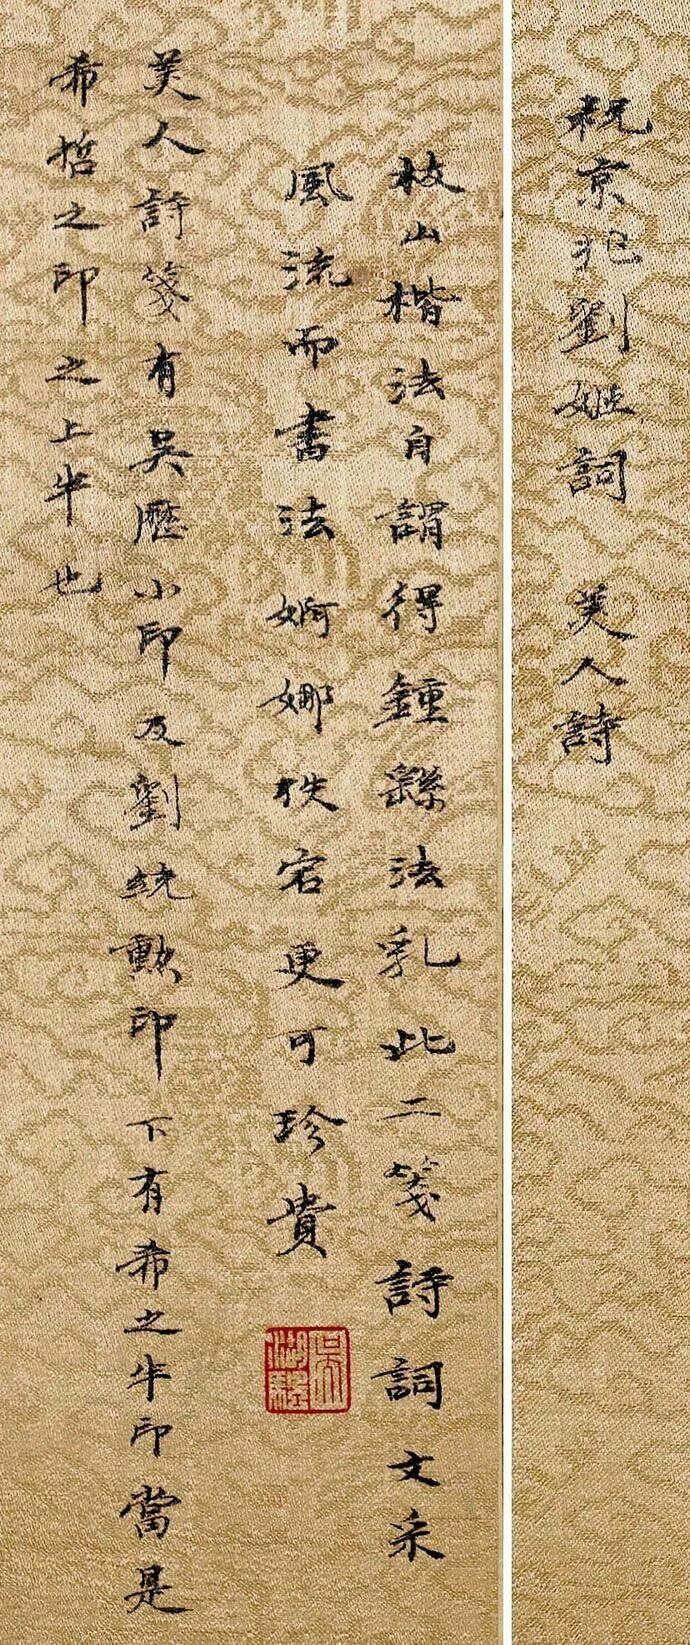 祝京兆劉姬詞　美人詩
枝山楷法自謂得鍾繇法乳此二箋詩詞文采
風流而書法婀娜秩宕更可珍貴
美人詩箋有吳歷小印及劉統勳印下有希之半印當是
希哲之印之上半也
吳湖騷